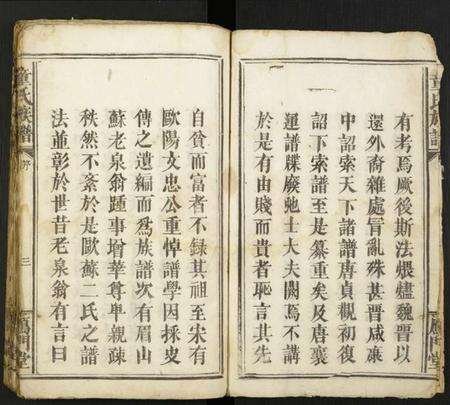 有考焉厥後斯法煨燼魏晉以
還外裔雜處冐亂殊甚晋咸康
中詔索天下諸譜唐貞觀初復
詔下索譜至是纂重矣及唐衰
運譜牒廢弛士大夫闕焉不講
於是有由賤而貴者恥言其先
自貧而富者不録其祖至宋有
歐陽文忠公重悼譜學因採史
傳之遺編而爲族譜次有眉山
蘇老泉翁踵事增華尊卑親疎
秩然不紊於是歐蘇二氏之譜
法並彰於世昔老泉翁有言曰
童氏族譜
序
三
雁門堂
童氏族譜
雁門堂